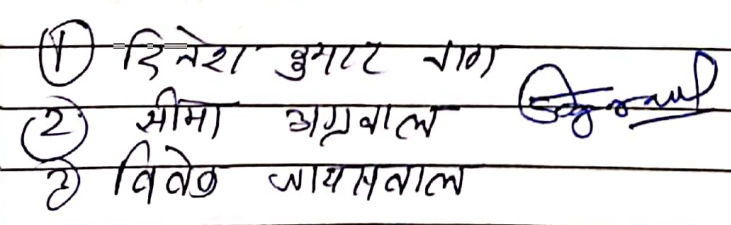 ① दिनेश कुमार नाग
② सीमा अग्रवाल
③ विवेक जायसवाल